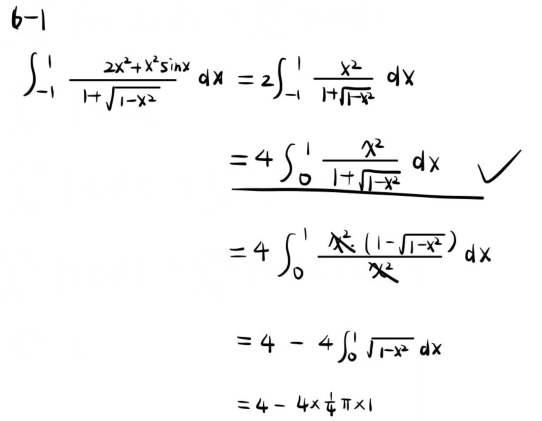 6-1
∫_{-1}^{1} (2x²+x²sinx)/(1+√(1-x²)) dx = 2∫_{-1}^{1} x²/(1+√(1-x²)) dx
= 4∫_{0}^{1} x²/(1+√(1-x²)) dx ✓
= 4∫_{0}^{1} x²·(1-√(1-x²))/x² dx
= 4 - 4∫_{0}^{1} √(1-x²) dx
= 4 - 4×¼π×1